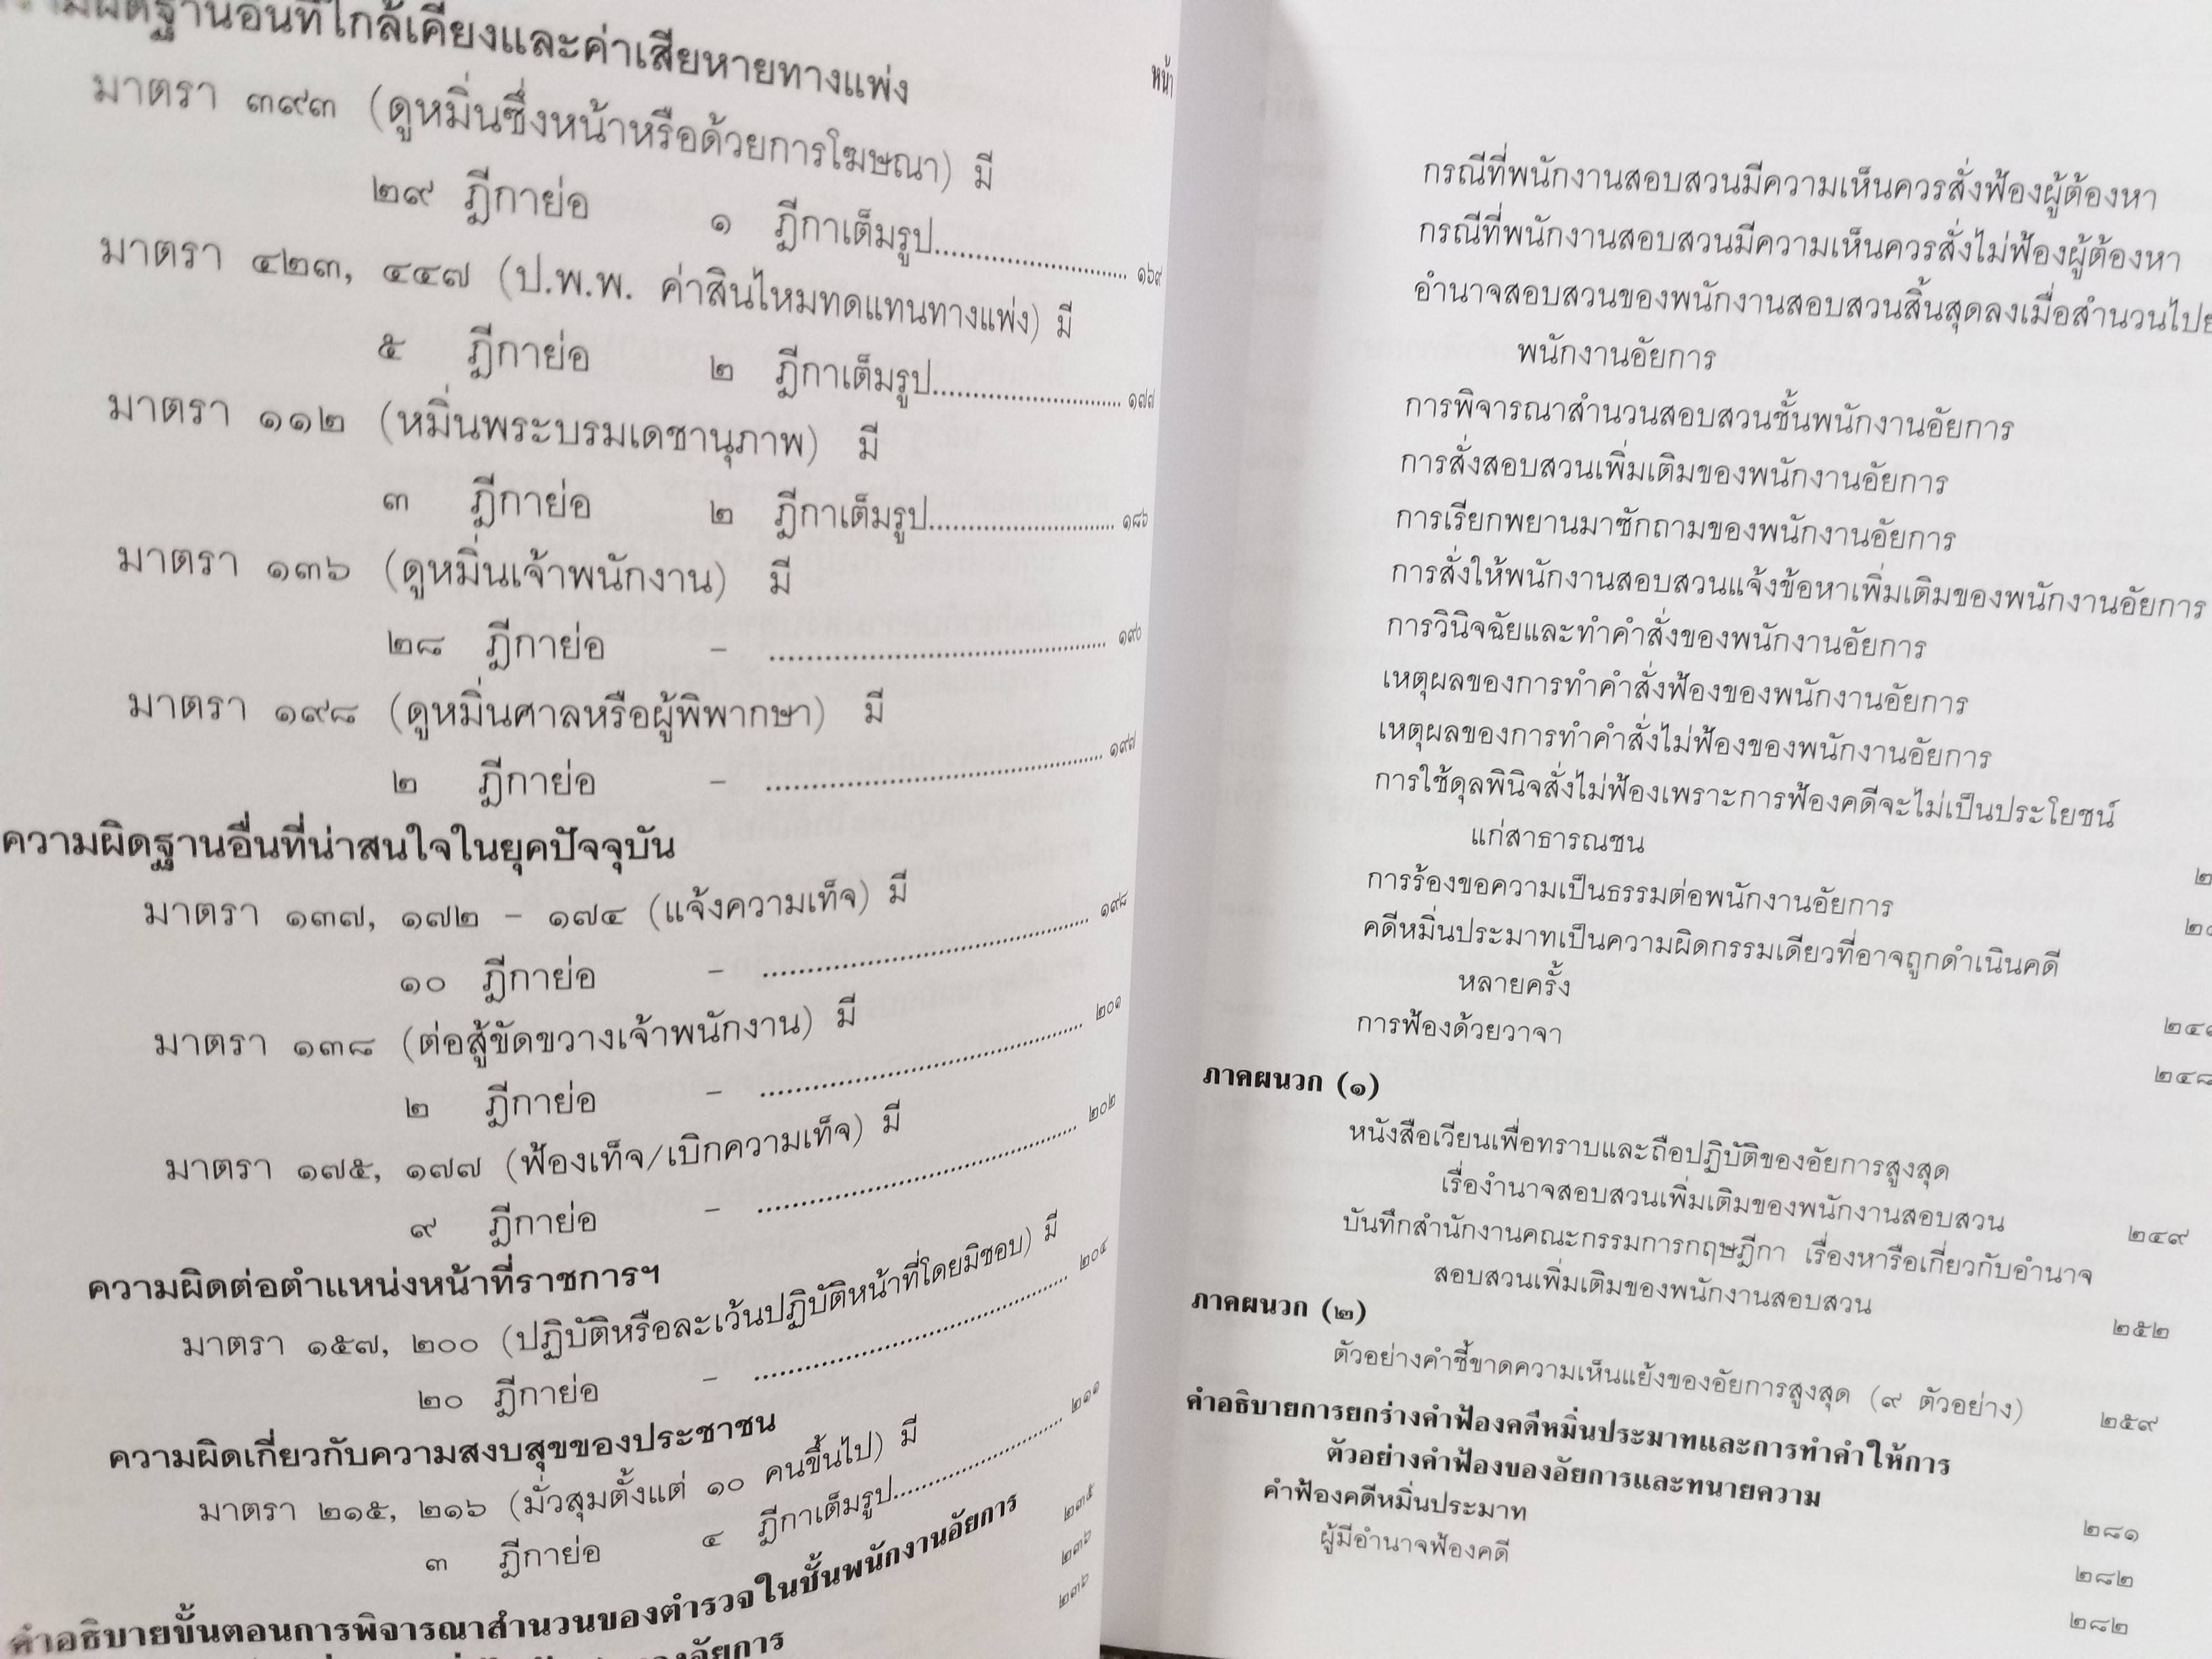 ฐานอื่นที่ใกล้เคียงและค่าเสียหายทางแพ่ง
หน้า
มาตรา ๓๙๓ (ดูหมิ่นซึ่งหน้าหรือด้วยการโฆษณา) มี
๒๙ ฎีกาย่อ ๑ ฎีกาเต็มรูป.......................... ๑๖๙
มาตรา ๔๒๓, ๔๔๗ (ป.พ.พ. ค่าสินไหมทดแทนทางแพ่ง) มี
๕ ฎีกาย่อ ๒ ฎีกาเต็มรูป.......................... ๑๗๗
มาตรา ๑๑๒ (หมิ่นพระบรมเดชานุภาพ) มี
๓ ฎีกาย่อ ๒ ฎีกาเต็มรูป.......................... ๑๘๖
มาตรา ๑๓๖ (ดูหมิ่นเจ้าพนักงาน) มี
๒๘ ฎีกาย่อ – .......................................... ๑๙๐
มาตรา ๑๙๘ (ดูหมิ่นศาลหรือผู้พิพากษา) มี
๒ ฎีกาย่อ – .......................................... ๑๙๗
ความผิดฐานอื่นที่น่าสนใจในยุคปัจจุบัน
มาตรา ๑๓๗, ๑๗๒ – ๑๗๔ (แจ้งความเท็จ) มี
๑๐ ฎีกาย่อ – .......................................... ๑๙๘
มาตรา ๑๓๘ (ต่อสู้ขัดขวางเจ้าพนักงาน) มี
๒ ฎีกาย่อ – .......................................... ๒๐๑
มาตรา ๑๗๕, ๑๗๗ (ฟ้องเท็จ/เบิกความเท็จ) มี
๙ ฎีกาย่อ – .......................................... ๒๐๒
ความผิดต่อตำแหน่งหน้าที่ราชการฯ
มาตรา ๑๕๗, ๒๐๐ (ปฏิบัติหรือละเว้นปฏิบัติหน้าที่โดยมิชอบ) มี
๒๐ ฎีกาย่อ – .......................................... ๒๐๔
ความผิดเกี่ยวกับความสงบสุขของประชาชน
มาตรา ๒๑๕, ๒๑๖ (มั่วสุมตั้งแต่ ๑๐ คนขึ้นไป) มี
๓ ฎีกาย่อ ๔ ฎีกาเต็มรูป.......................... ๒๑๑
คำอธิบายขั้นตอนการพิจารณาสำนวนของตำรวจในชั้นพนักงานอัยการ ๒๓๕
๒๓๖
ของอัยการ ๒๓๖
กรณีที่พนักงานสอบสวนมีความเห็นควรสั่งฟ้องผู้ต้องหา
กรณีที่พนักงานสอบสวนมีความเห็นควรสั่งไม่ฟ้องผู้ต้องหา
อำนาจสอบสวนของพนักงานสอบสวนสิ้นสุดลงเมื่อสำนวนไป
พนักงานอัยการ
การพิจารณาสำนวนสอบสวนชั้นพนักงานอัยการ
การสั่งสอบสวนเพิ่มเติมของพนักงานอัยการ
การเรียกพยานมาซักถามของพนักงานอัยการ
การสั่งให้พนักงานสอบสวนแจ้งข้อหาเพิ่มเติมของพนักงานอัยการ
การวินิจฉัยและทำคำสั่งของพนักงานอัยการ
เหตุผลของการทำคำสั่งฟ้องของพนักงานอัยการ
เหตุผลของการทำคำสั่งไม่ฟ้องของพนักงานอัยการ
การใช้ดุลพินิจสั่งไม่ฟ้องเพราะการฟ้องคดีจะไม่เป็นประโยชน์
แก่สาธารณชน
การร้องขอความเป็นธรรมต่อพนักงานอัยการ
คดีหมิ่นประมาทเป็นความผิดกรรมเดียวที่อาจถูกดำเนินคดี
หลายครั้ง
การฟ้องด้วยวาจา ๒๔๘
ภาคผนวก (๑)
หนังสือเวียนเพื่อทราบและถือปฏิบัติของอัยการสูงสุด
เรื่องำนาจสอบสวนเพิ่มเติมของพนักงานสอบสวน ๒๔๙
บันทึกสำนักงานคณะกรรมการกฤษฎีกา เรื่องหารือเกี่ยวกับอำนาจ
สอบสวนเพิ่มเติมของพนักงานสอบสวน ๒๕๒
ภาคผนวก (๒)
ตัวอย่างคำชี้ขาดความเห็นแย้งของอัยการสูงสุด (๙ ตัวอย่าง) ๒๕๙
คำอธิบายการยกร่างคำฟ้องคดีหมิ่นประมาทและการทำคำให้การ
ตัวอย่างคำฟ้องของอัยการและทนายความ ๒๘๑
คำฟ้องคดีหมิ่นประมาท ๒๘๒
ผู้มีอำนาจฟ้องคดี ๒๘๒